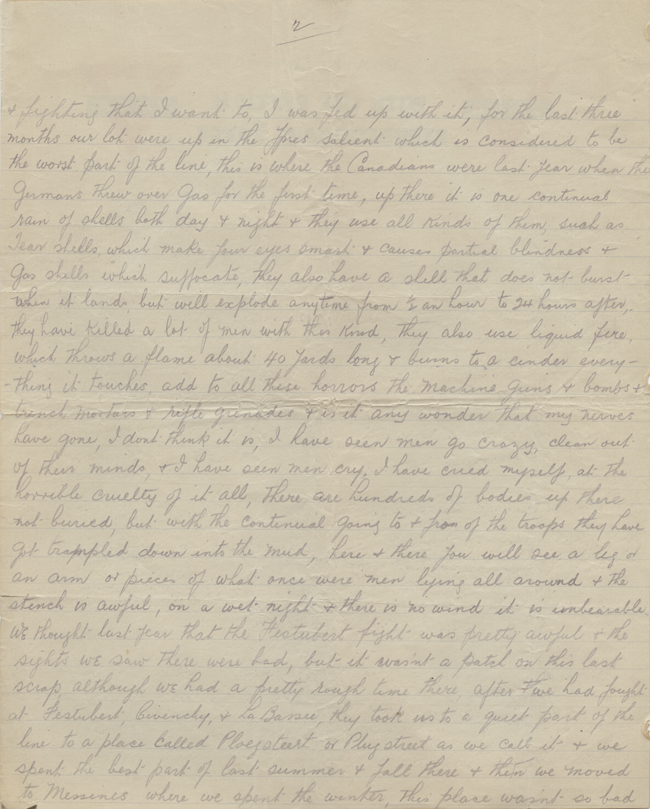 2
& fighting that I want to, I was fed up with it, for the last three
months our lot were up in the Ypres salient which is considered to be
the worst part of the line, this is where the Canadians were last year when the
Germans threw over Gas for the first time, up there it is one continual
rain of shells both day & night & they use all kinds of them, such as
Tear shells, which make your eyes smart & causes partial blindness &
Gas shells which suffocate, they also have a shell that does not burst
when it lands but will explode anytime from ½ an hour to 24 hours after,
they have killed a lot of men with this kind, they also use liquid fire
which throws a flame about 40 yards long & burns to a cinder every-
-thing it touches, add to all these horrors the Machine Guns & bombs &
trench mortars & rifle grenades & is it any wonder that my nerves
have gone, I dont think it is, I have seen men go crazy, clean out
of their minds, & I have seen men cry, I have cried myself, at the
horrible cruelty of it all, there are hundreds of bodies up there
not buried, but with the continual going to & from of the troops they have
got trampled down into the mud, here & there you will see a leg &
an arm or pieces of what once were men lying all around & the
stench is awful, on a wet night & there is no wind it is unbearable
We thought last year that the Festubert fight was pretty awful & the
sights we saw there were bad, but it wasnt a patch on this last
scrap, although we had a pretty rough time there, after we had fought
at Festubert, Givenchy, & La Bassee, they took us to a quiet part of the
line to a place called Ploegsteert or Plugstreet as we call it & we
spent the best part of last summer & fall there & then we moved
to Messines where we spent the winter, this place wasnt so bad